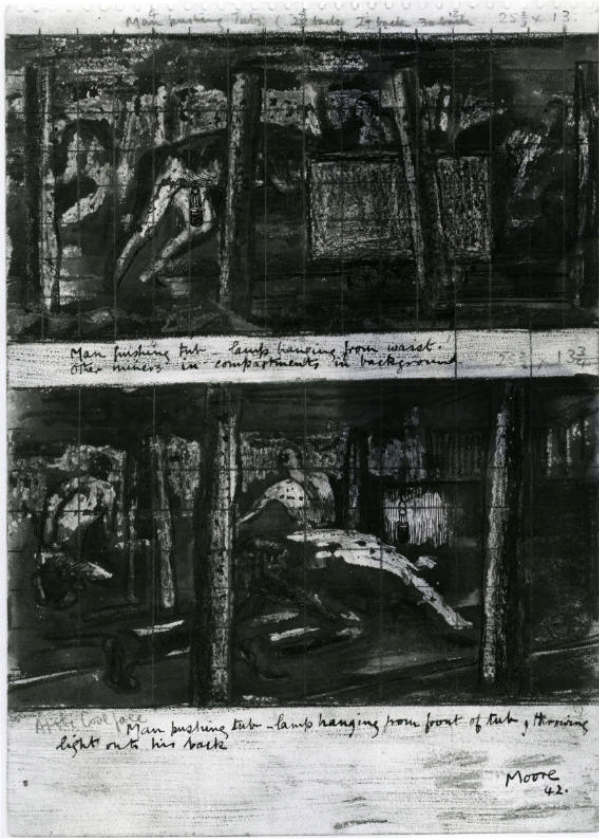 Man pushing Tub
25 ¾ x 13
Man pushing tub – lamp hanging from waist.
Other miners in compartments in background
13 ¾
At the Coal face
Man pushing tub – lamp hanging from front of tub, & throwing
light onto his back
Moore
42.